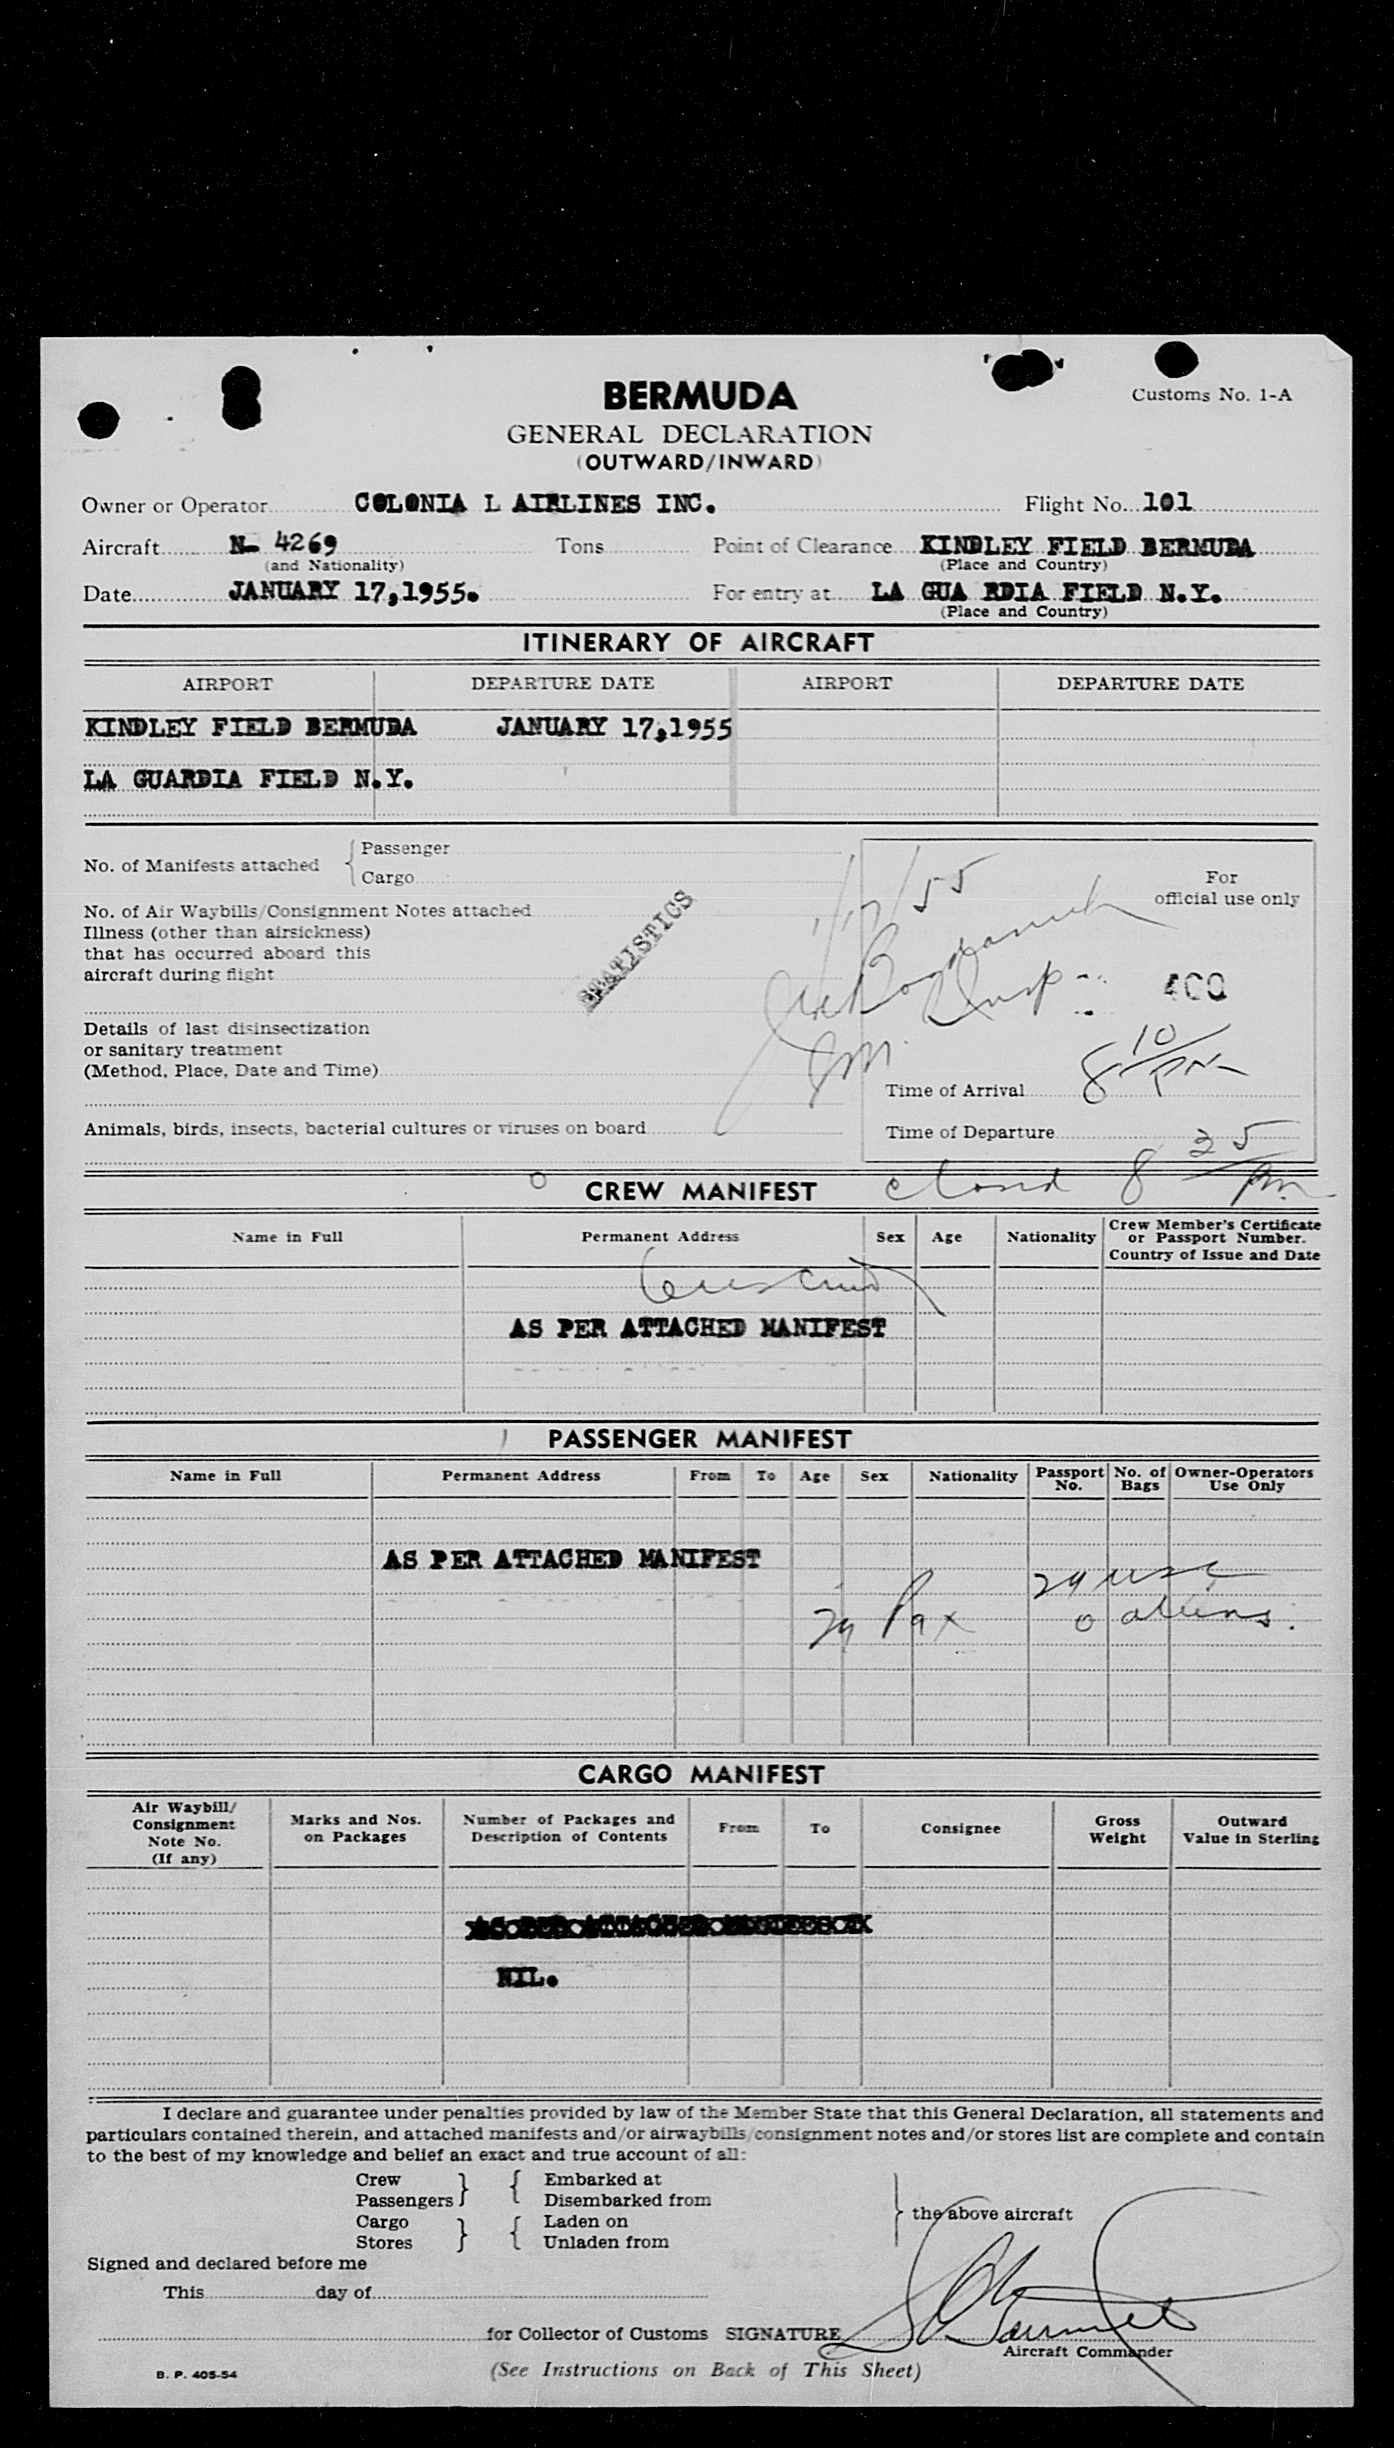 BERMUDA
Customs No. 1-A
GENERAL DECLARATION
(OUTWARD/INWARD)
Owner or Operator COLONIA L AIRLINES INC. Flight No. 101
Aircraft N- 4269 Tons Point of Clearance KINDLEY FIELD BERMUDA
(and Nationality) (Place and Country)
Date JANUARY 17,1955. For entry at LA GUA RDIA FIELD N.Y.
(Place and Country)
ITINERARY OF AIRCRAFT
AIRPORT DEPARTURE DATE AIRPORT DEPARTURE DATE
KINDLEY FIELD BERMUDA JANUARY 17,1955
LA GUARDIA FIELD N.Y.
No. of Manifests attached
Passenger
Cargo
1/17/55
For
official use only
No. of Air Waybills/Consignment Notes attached
STATISTICS
Illness (other than airsickness)
that has occurred aboard this
aircraft during flight
Insp
400
Details of last disinsectization
or sanitary treatment
(Method, Place, Date and Time)
Time of Arrival 8 10/PM
Animals, birds, insects, bacterial cultures or viruses on board
Time of Departure
closed 8 25/PM
CREW MANIFEST
Name in Full Permanent Address Sex Age Nationality Crew Member's Certificate
or Passport Number.
Country of Issue and Date
AS PER ATTACHED MANIFEST
PASSENGER MANIFEST
Name in Full Permanent Address From To Age Sex Nationality Passport No. No. of Bags Owner-Operators Use Only
AS PER ATTACHED MANIFEST
29 usc
29 Pax
0 aliens.
CARGO MANIFEST
Air Waybill/
Consignment
Note No.
(If any)
Marks and Nos.
on Packages
Number of Packages and
Description of Contents
From To Consignee
Gross
Weight
Outward
Value in Sterling
NIL.
I declare and guarantee under penalties provided by law of the Member State that this General Declaration, all statements and
particulars contained therein, and attached manifests and/or airwaybills/consignment notes and/or stores list are complete and contain
to the best of my knowledge and belief an exact and true account of all:
Crew Embarked at
Passengers Disembarked from
Cargo Laden on
the above aircraft
Stores Unladen from
Signed and declared before me
This day of
for Collector of Customs SIGNATURE
Aircraft Commander
B. P. 405-54
(See Instructions on Back of This Sheet)